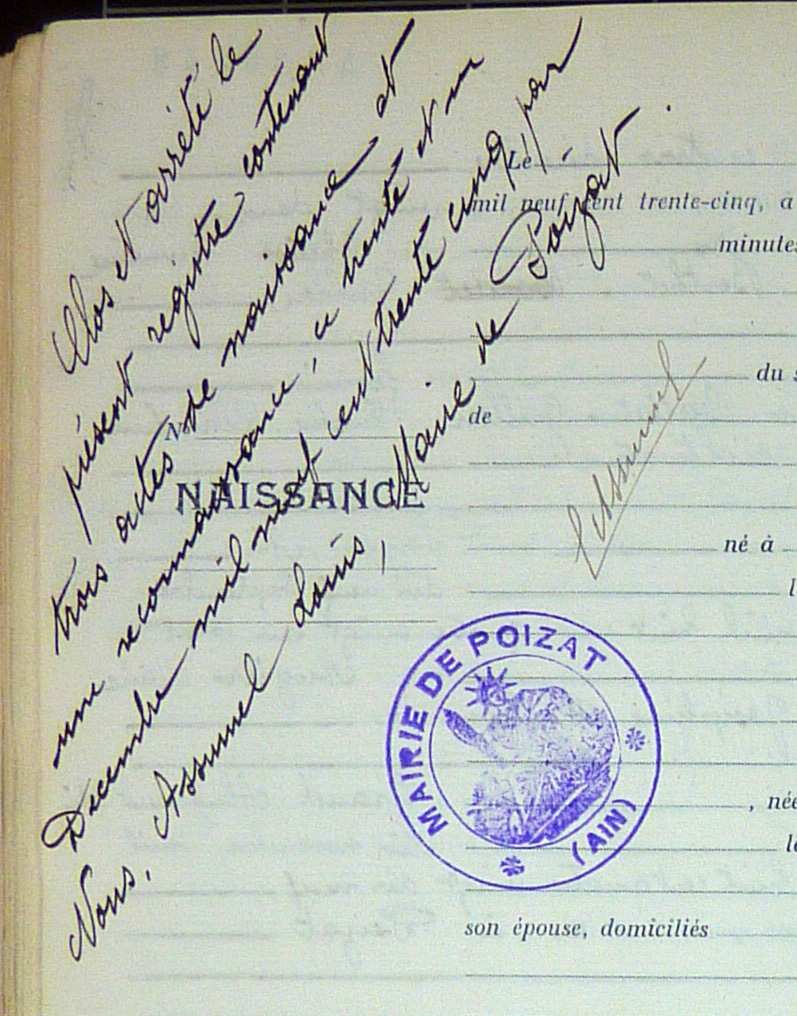 Clos et arrêté le
présent registre contenant
trois actes de naissance et
une reconnaissance, a trente et un
Décembre mil neuf cent trente cinq, par
Nous, Assumel Louis, Maire de Poizat.
Le
mil neuf cent trente-cinq, à
minutes
du s
No
de
NAISSANCE
LAssumel
né à
l
MAIRIE DE POIZAT
(AIN)
, née
le
son épouse, domiciliés